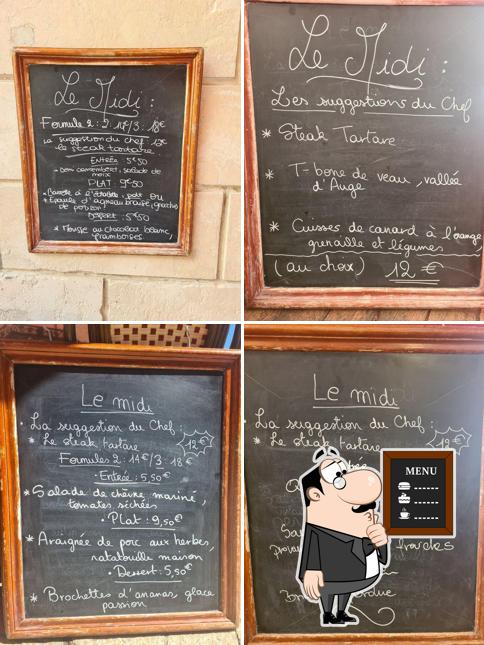 Le Midi :
Formule 2 : 14€/3 : 18€
La suggestion du chef : 12€
le steak tartare
Entrée 5€50
Don camembert, salade de
mâche
PLAT : 9€50
ou
* Épaule d'agneau braisé, gnocchis
de potiron
Dessert : 5€50
* Mousse au chocolat blanc,
framboises
Le Midi :
Les suggestions du Chef
* Steak Tartare
* T-bone de veau, vallée
d'Auge
* Cuisses de canard à l'orange
grenaille et légumes
(au choix) 12 €
Le midi
La suggestion du Chef :
* Le steak tartare 12€
Formules 2 : 14€/3 : 18€
• Entrée : 5,50€
* Salade de chèvre mariné,
tomates séchées
• Plat : 9,50€
* Araignée de porc aux herbes,
ratatouille maison
• Dessert : 5,50€
* Brochettes d'ananas, glace
passion
Le midi
La suggestion du Chef :
* Le steak tartare 12€
MENU